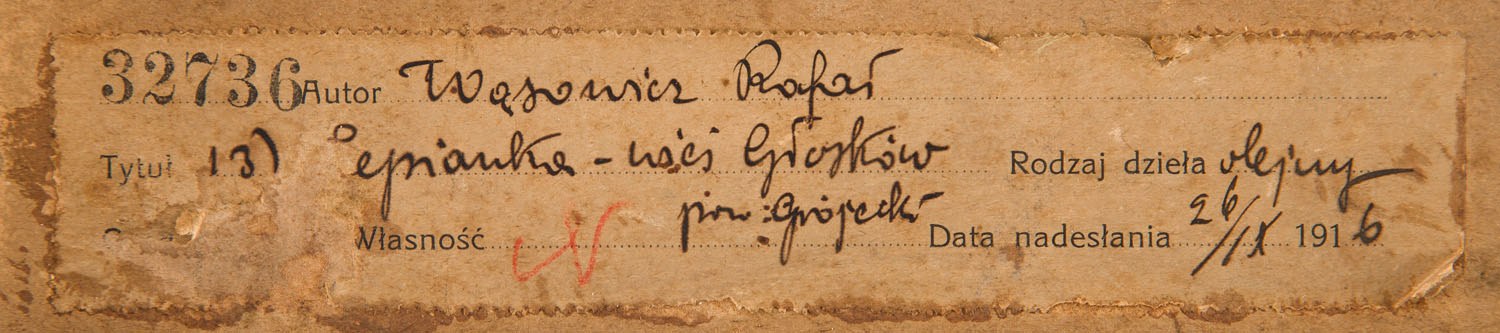 32736 Autor Wąsowicz Rafał
Tytuł 13) Lepianka - wieś Głosków Rodzaj dzieła olejny
pow: Grójecki
Własność Data nadesłania 26/IX 1916